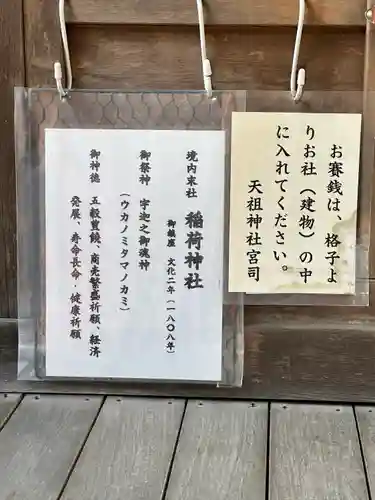 お賽銭は、格子よ
りお社（建物）の中
に入れてください。
天祖神社宮司
境内末社 稲荷神社
御鎮座 文化二年（一八〇八年）
御祭神 宇迦之御魂神
（ウカノミタマノカミ）
御神徳 五穀豊饒、商売繁盛祈願、経済
発展、寿命長命・健康祈願